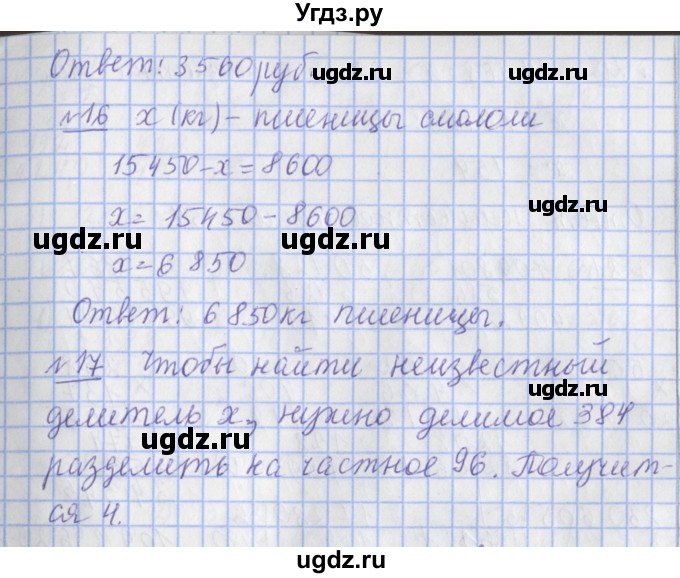 Угдз.ру
Ответ: 3560 руб
ugdz.ru
№16 x (кг) - пшеницы смололи
ugdz.ru
15450-x=8600
ugdz.ru
x= 15450-8600
ugdz.ru ugdz.ru
x=6 850
Ответ: 6 850 кг пшеницы.
№17 Чтобы найти неизвестный
ugdz.ru
делитель x, нужно делимое 384
ugdz.ru
разделить на частное 96. Получит-
ся 4.
ugdz.ru